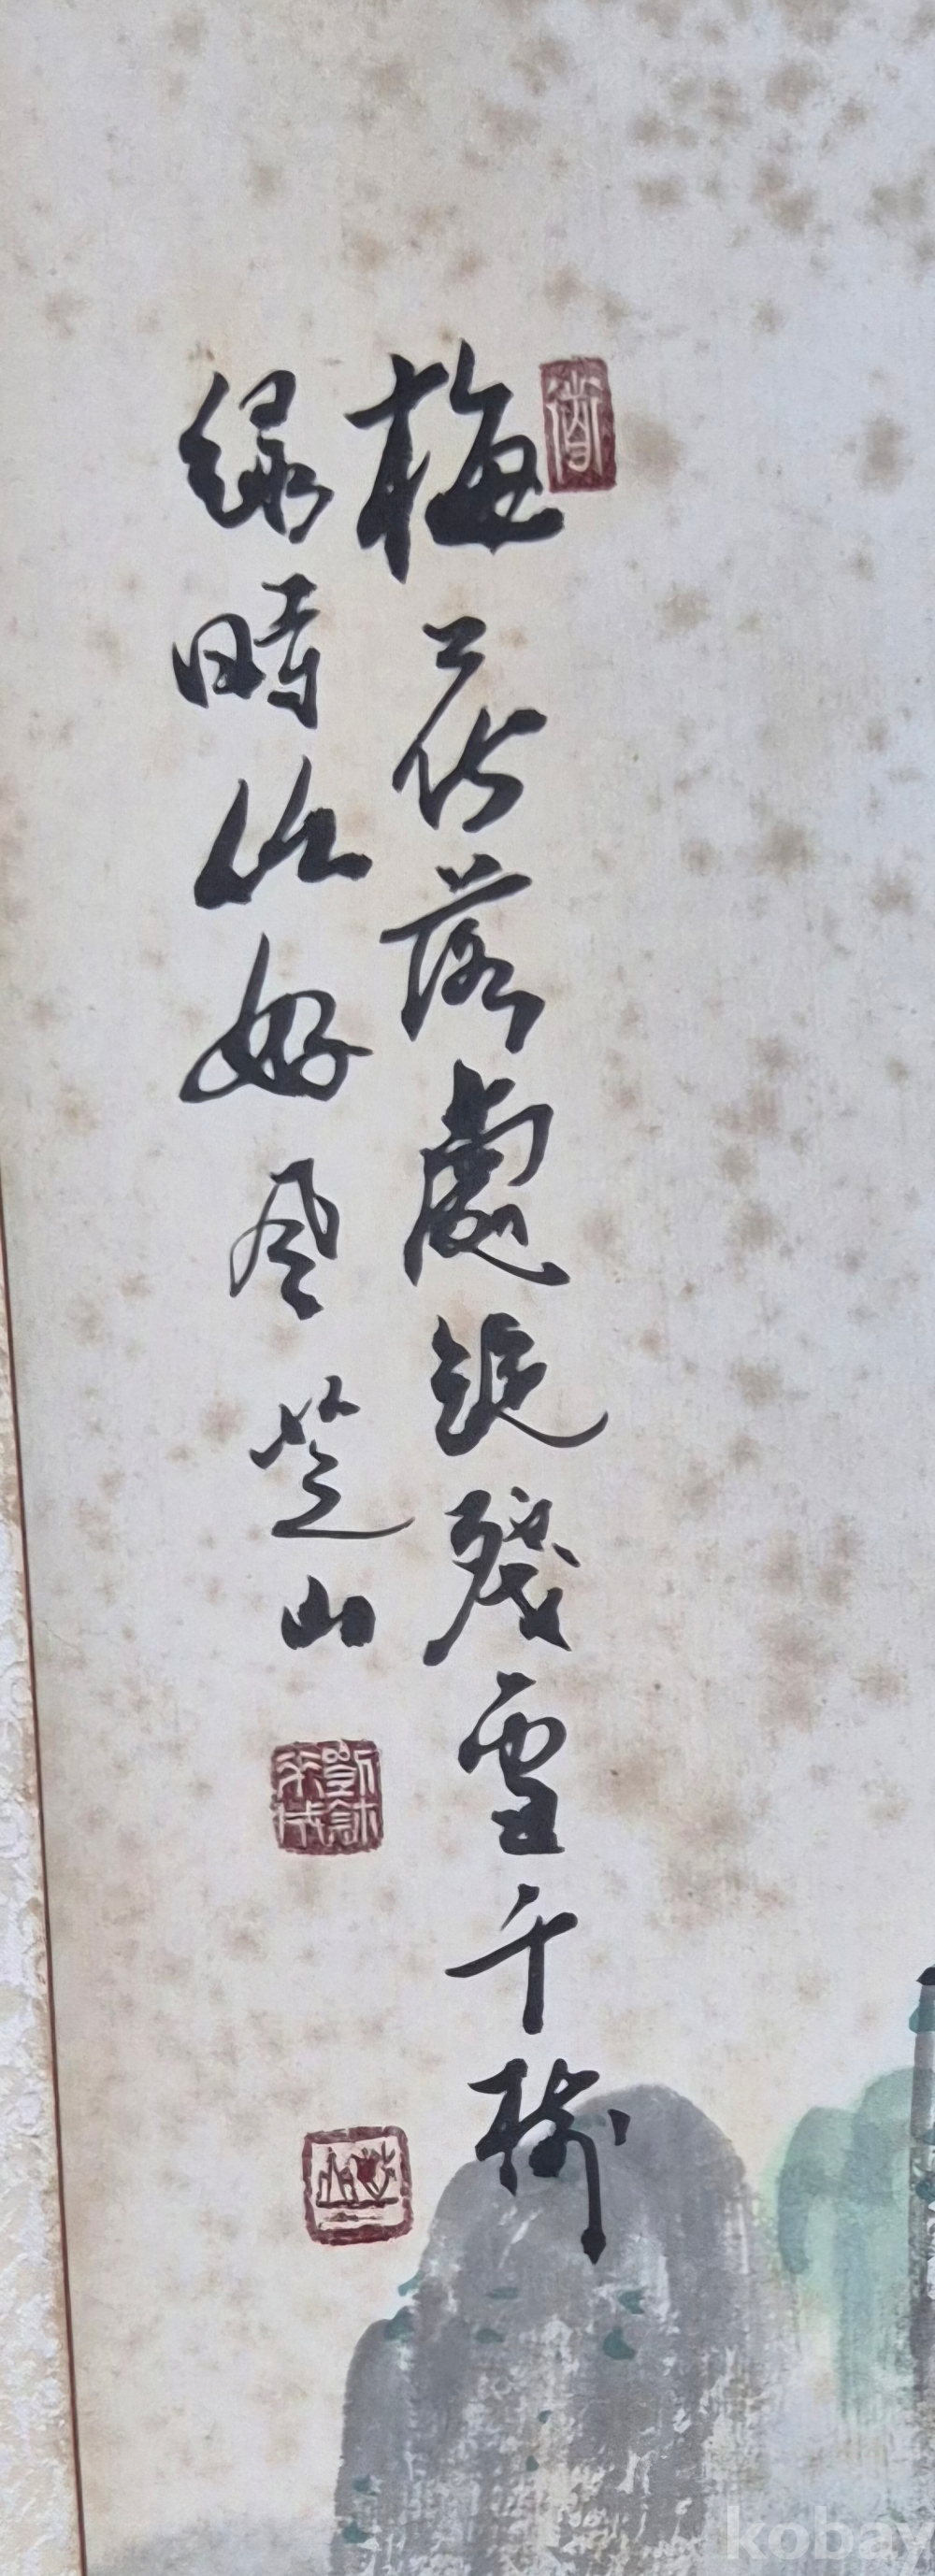 梅花落處疑殘雪千樹
綠時好風芝山
kobay